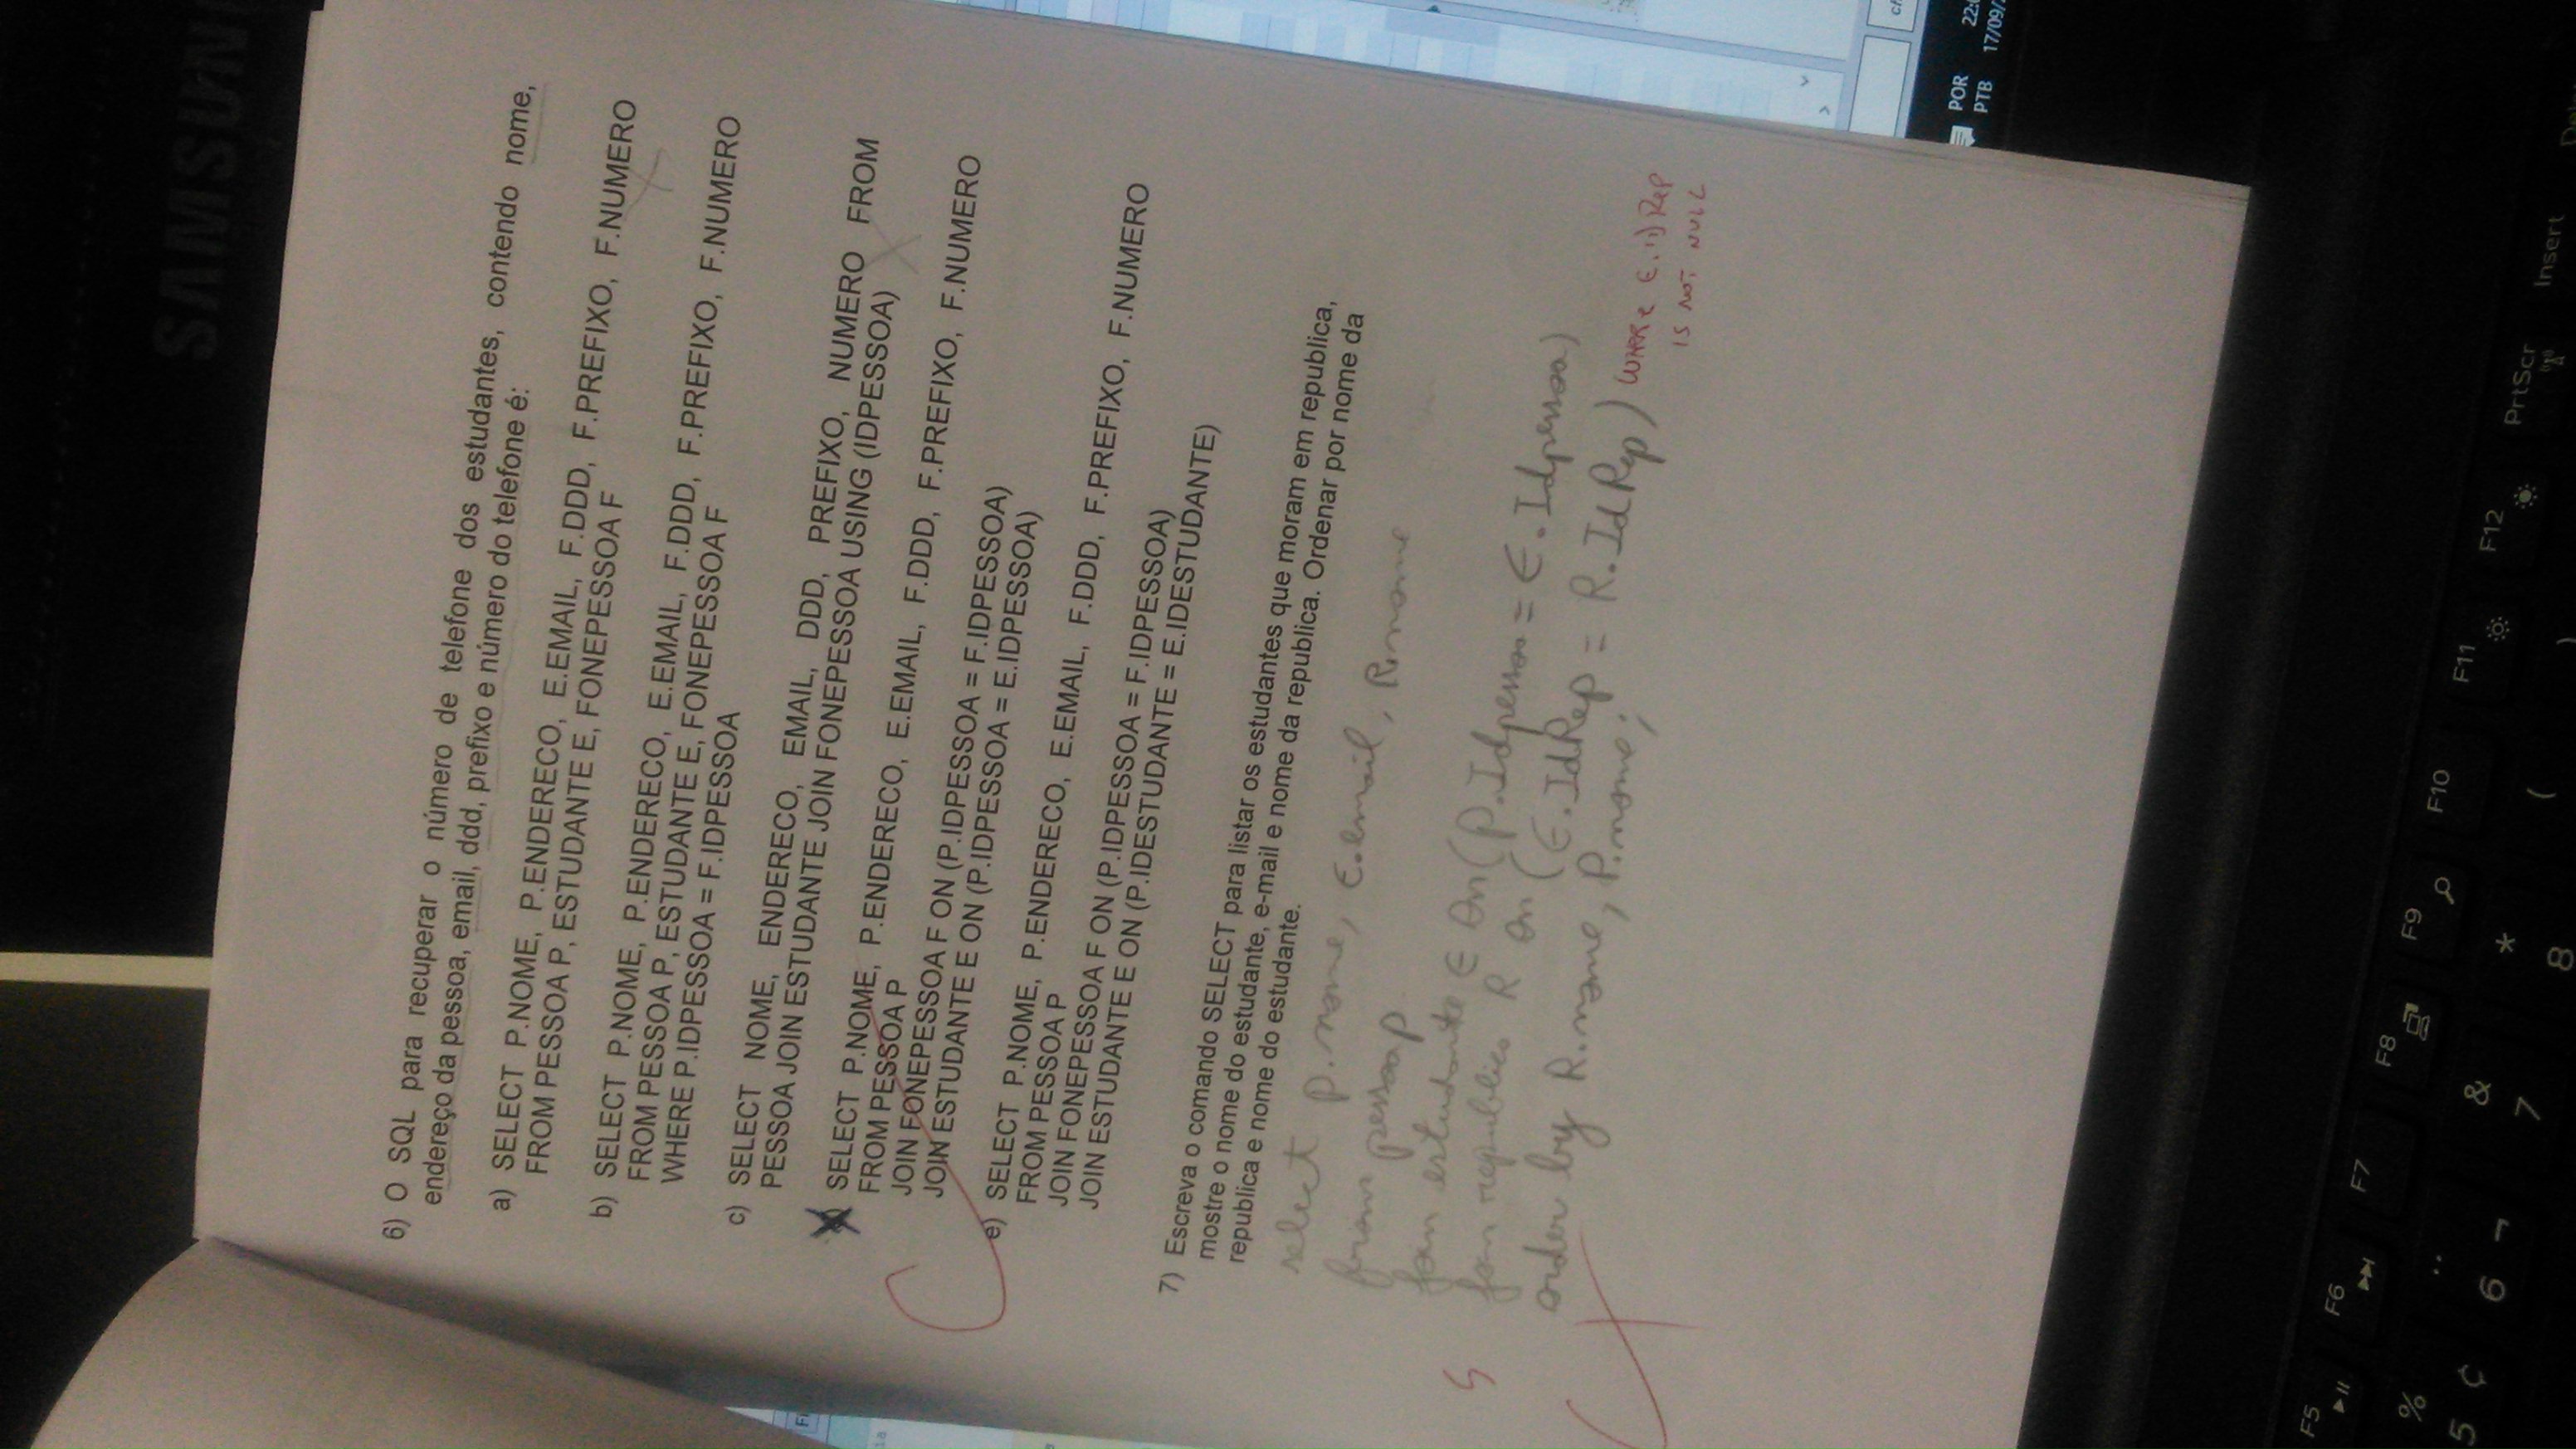 SAMSUN
6) O SQL para recuperar o número de telefone dos estudantes, contendo nome,
endereço da pessoa, email, ddd, prefixo e número do telefone é:
a) SELECT P.NOME, P.ENDERECO, E.EMAIL, F.DDD, F.PREFIXO, F.NUMERO
FROM PESSOA P, ESTUDANTE E, FONEPESSOA F
b) SELECT P.NOME, P.ENDERECO, E.EMAIL, F.DDD, F.PREFIXO, F.NUMERO
FROM PESSOA P, ESTUDANTE E, FONEPESSOA F
WHERE P.IDPESSOA = F.IDPESSOA
c) SELECT NOME, ENDERECO, EMAIL, DDD, PREFIXO, NUMERO FROM
PESSOA JOIN ESTUDANTE JOIN FONEPESSOA USING (IDPESSOA)
SELECT P.NOME, P.ENDERECO, E.EMAIL, F.DDD, F.PREFIXO, F.NUMERO
FROM PESSOA P
JOIN FONEPESSOA F ON (P.IDPESSOA = F.IDPESSOA)
JOIN ESTUDANTE E ON (P.IDPESSOA = E.IDPESSOA)
e) SELECT P.NOME, P.ENDERECO, E.EMAIL, F.DDD, F.PREFIXO, F.NUMERO
FROM PESSOA P
JOIN FONEPESSOA F ON (P.IDPESSOA = F.IDPESSOA)
JOIN ESTUDANTE E ON (P.IDESTUDANTE = E.IDESTUDANTE)
7) Escreva o comando SELECT para listar os estudantes que moram em republica,
mostre o nome do estudante, e-mail e nome da republica. Ordenar por nome da
republica e nome do estudante.
select p.nome, E.email, R.nome
from pessoa p
join estudante E on (P.Idpessoa = E.Idpessoa)
join republica R on (E.IdRep = R.IdRep) WHERE E.IDRep
IS NOT NULL
order by R.nome, P.nome;
POR
PTB
22:
17/09/
F5
F6
F7
F8
F9
F10
F11
F12
PrtScr
Insert
%
5 ¢
6 ¬
&
7
*
8
(
)